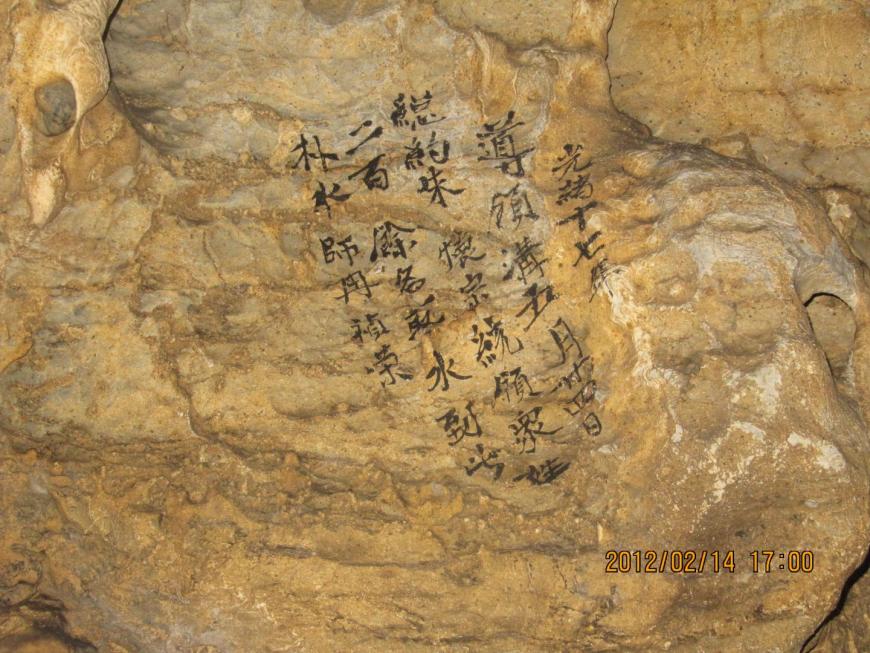 光緒十七年
導領溝五月廿四日
總約味懷宗統領眾姓
二百餘名乞水到此
朴水師用禎榮
2012/02/14 17:00